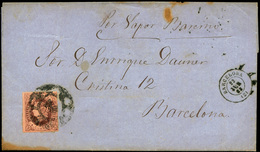 Por Vapor
Sor. D. Enrique Dauner
Cristina 12
Barcelona
BARCELONA